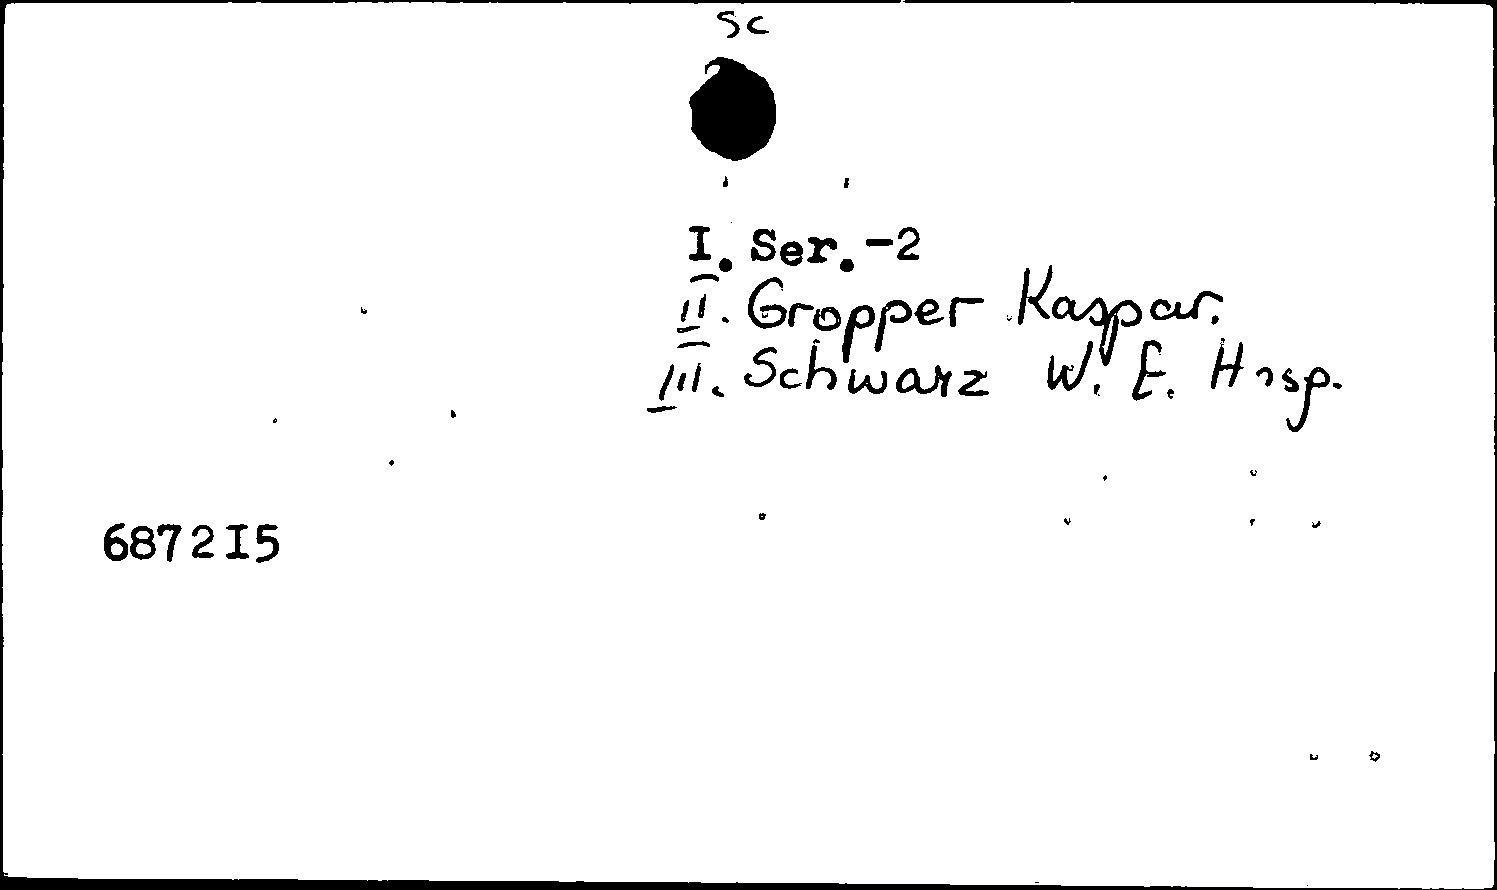 Sc
I. Ser.-2
II. Gropper Kaspar.
III. Schwarz W. E. Hrsp.
6872I5